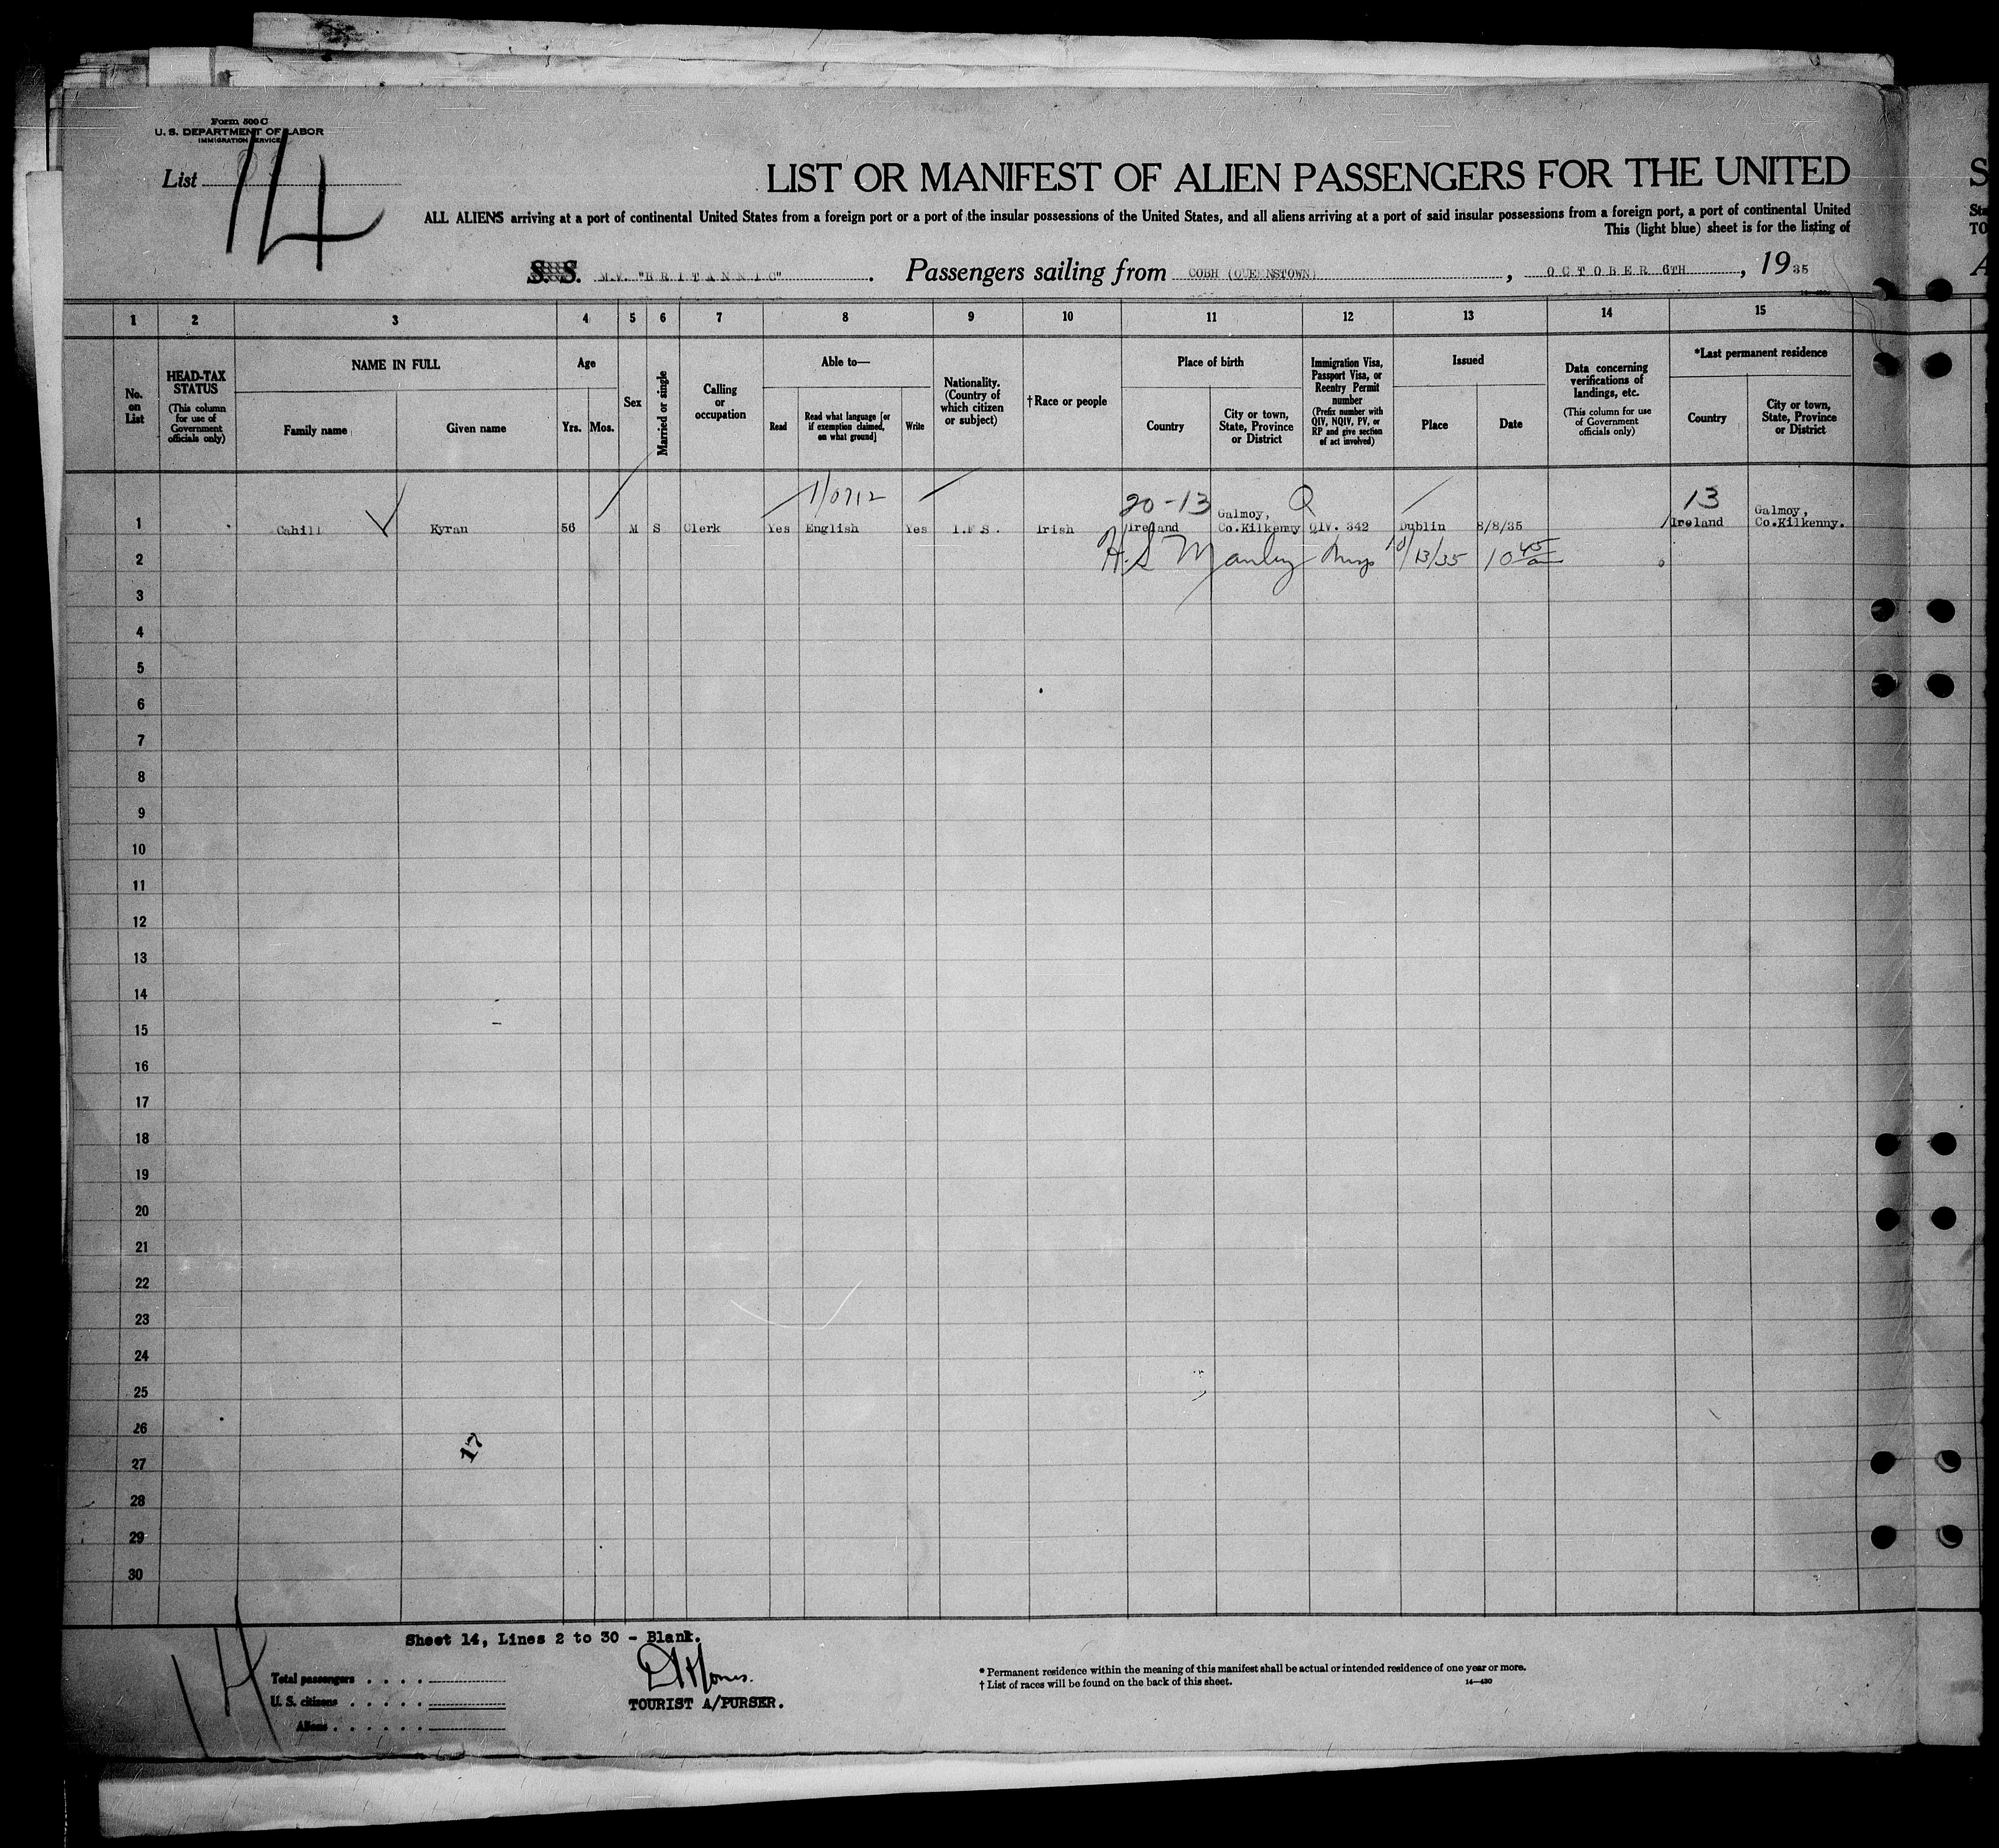 Form 500 C
U. S. DEPARTMENT OF LABOR
IMMIGRATION SERVICE
List 14
LIST OR MANIFEST OF ALIEN PASSENGERS FOR THE UNITED
ALL ALIENS arriving at a port of continental United States from a foreign port or a port of the insular possessions of the United States, and all aliens arriving at a port of said insular possessions from a foreign port, a port of continental United
This (light blue) sheet is for the listing of
S. S. M.V. "B R I T A N N I C". Passengers sailing from COBH (QUEENSTOWN), O C T O B E R 6TH, 1935
1 2 3 4 5 6 7 8 9 10 11 12 13 14 15
No. on List
HEAD-TAX STATUS (This column for use of Government officials only)
NAME IN FULL
Family name
Given name
Age
Yrs. Mos.
Sex
Married or single
Calling or occupation
Able to—
Read
Read what language [or if exemption claimed, on what ground]
Write
Nationality. (Country of which citizen or subject)
†Race or people
Place of birth
Country
City or town, State, Province or District
Immigration Visa, Passport Visa, or Reentry Permit number (Prefix number with QIV, NQIV, PV, or RP and give section of act involved)
Issued
Place
Date
Data concerning verifications of landings, etc. (This column for use of Government officials only)
*Last permanent residence
Country
City or town, State, Province or District
20-13 Q 13
1 Cahill Kyran 56 M S Clerk Yes English Yes I.F.S. Irish Ireland Galmoy, Co.Kilkenny QIV. 342 Dublin 8/8/35 Ireland Galmoy, Co.Kilkenny.
2 H.S. Manley Insp 10/13/35 10 45 am
3
4
5
6
7
8
9
10
11
12
13
14
15
16
17
18
19
20
21
22
23
24
25
26
17
27
28
29
30
Sheet 14, Lines 2 to 30 - Blank.
14
Total passengers
U. S. citizens
Aliens
TOURIST A/PURSER.
* Permanent residence within the meaning of this manifest shall be actual or intended residence of one year or more.
† List of races will be found on the back of this sheet.
14—430